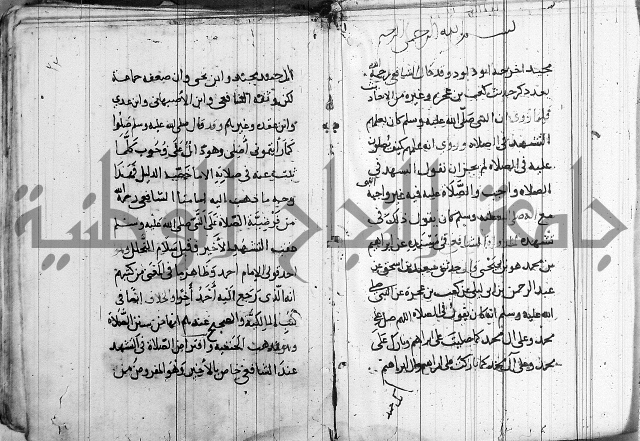 بسم الله الرحمن الرحيم
مجيد اخرجه ابو داود وقد قال الشافعي رحمه
بعد ذكر حديث كعب بن عجرة وغيره من الاحاد
فلما روي ان النبي صلى الله عليه وسلم كان يعلم
التشهد في الصلاة وروي انه علمهم كيف يصلون
عليه في الصلاة لم يجز ان نقول التشهد في
الصلاة واجب والصلاة عليه فيه غير واجبة
مع عليه وسلم كان يقول ذلك في
تشهده الشافعي في عن ابراهيم
بن محمد هو بن يحيى سعيد بن اسحق بن
عبد الرحمن بن ابي ليلى عن كعب بن عجرة عن النبي صلى
الله عليه وسلم انه كان يقول في الصلاة اللهم صل على
محمد وعلى ال محمد كما صليت على ابراهيم وبارك على
محمد وعلى آل محمد كما باركت على ابراهيم وال ابراهيم
انك حميد
انك حميد مجيد وابن يحيى وان ضعفه جماعة
لكن وثقه الشافعي وابن الأصبهاني وابن عدي
وابن عقدة وغيرهم وقد قال صلى الله عليه وسلم صلوا
كما رأيتموني أصلي وهو دال على وجوب كلما
ثبت عنه في صلاته الا ما خصه الدليل فهذا
وجه ما ذهب اليه امامنا الشافعي رحمه الله
من فرضية الصلاة على النبي صلى الله عليه وسلم
عقب التشهد الأخير وقبل سلام التحلل وهو
احد قولي الامام احمد وظاهر ما في المغني من كتبهم
انه الذي رجع اليه أحمد أخرا والخلاف ايضا في
كتب المالكية والصحيح عندهم انها من سنن الصلاة
وهو مذهب الحنفية وافتراض الصلاة في التشهد
عند الشافعي خاص بالأخير وهو المفروض من
جامعة النجاح الوطنية